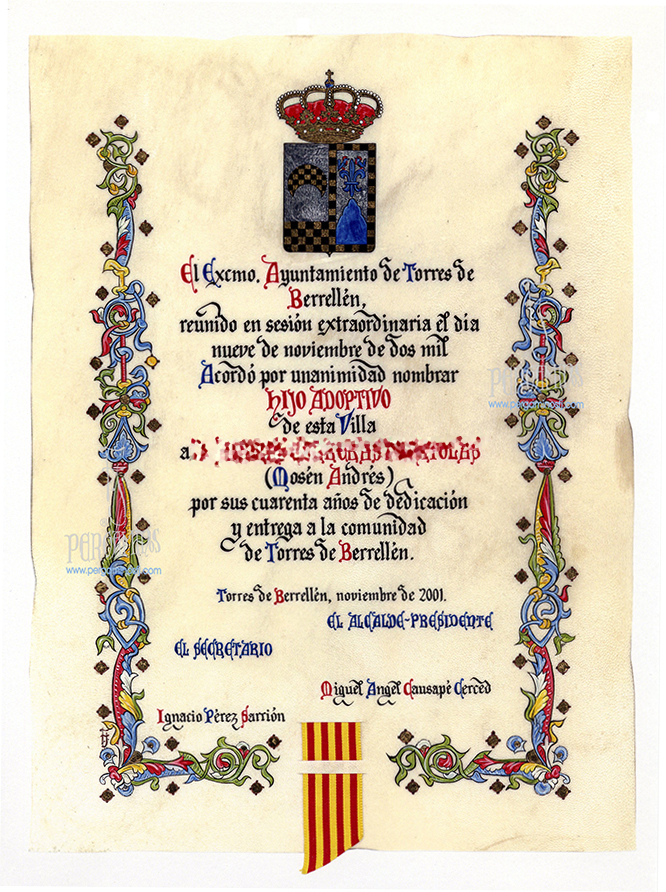 El Excmo. Ayuntamiento de Torres de
Berrellén,
reunido en sesión extraordinaria el día
nueve de noviembre de dos mil
Acordó por unanimidad nombrar
HIJO ADOPTIVO
de esta Villa
a D.
(Mosén Andrés)
por sus cuarenta años de dedicación
y entrega a la comunidad
de Torres de Berrellén.
Torres de Berrellén, noviembre de 2001.
EL ALCALDE-PRESIDENTE
EL SECRETARIO
Miguel Angel Causapé Cerced
Ignacio Pérez Sarrión